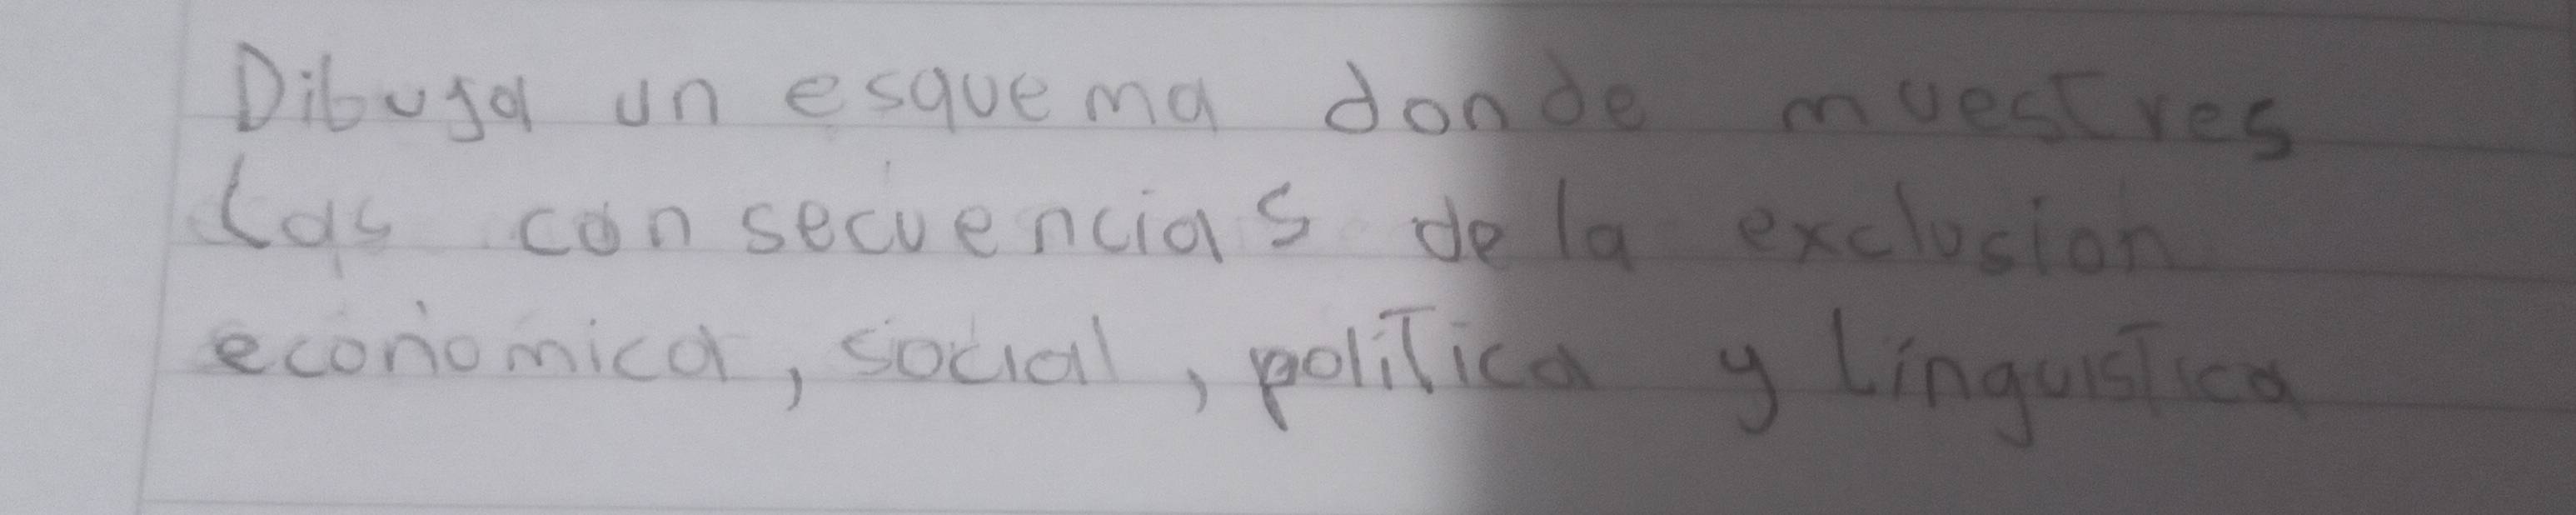 Dibuja un esquema donde muestres
las consecuencias de la exclusion
económica, social, política y linguistica